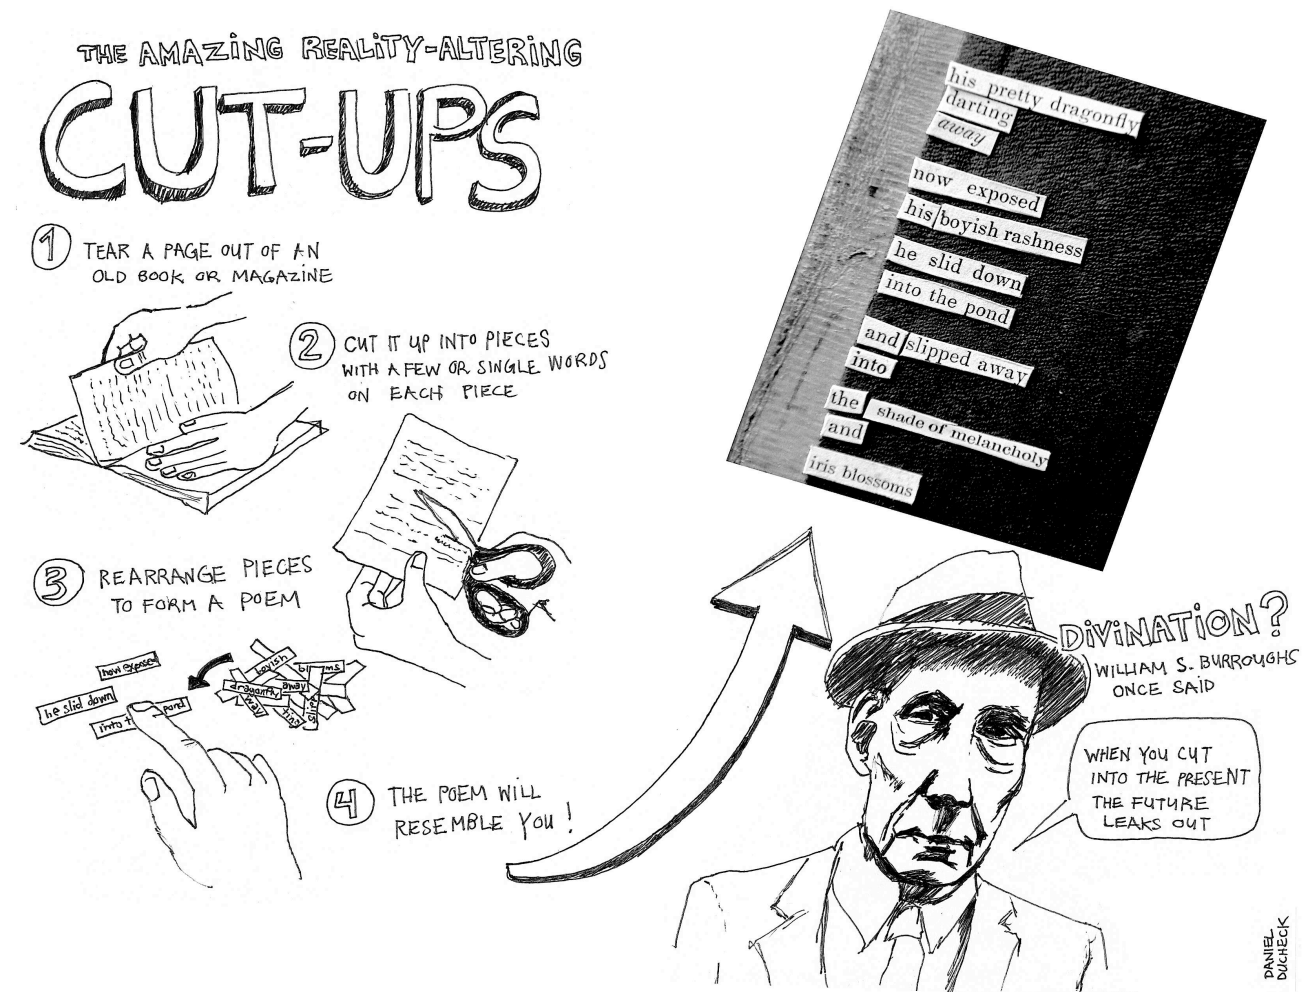 THE AMAZING REALITY-ALTERING
CUT-UPS
1 TEAR A PAGE OUT OF AN
OLD BOOK OR MAGAZINE
2 CUT IT UP INTO PIECES
WITH A FEW OR SINGLE WORDS
ON EACH PIECE
3 REARRANGE PIECES
TO FORM A POEM
now exposed
he slid down
into t pond
boyish
bl ms
dragonfly
away
4 THE POEM WILL
RESEMBLE YOU!
his pretty dragonfly
darting
away
now exposed
his boyish rashness
he slid down
into the pond
and slipped away
into
the shade of melancholy
and
iris blossoms
DIVINATION?
WILLIAM S. BURROUGHS
ONCE SAID
WHEN YOU CUT
INTO THE PRESENT
THE FUTURE
LEAKS OUT
DANIEL
DUCHECK